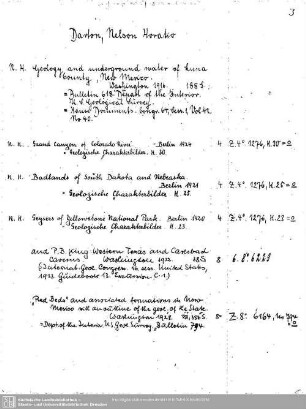 3
Darton, Nelson Horatio
N. H. Geology and underground water of Luna
County, New Mexico.
Washington 1916. 188 S.
= Bulletin 618. Depart. of the Interior.
U. S. Geological Survey.
= House Documents. Congr. 64, Sess. 1, Vol. 42,
No. 42.
N. H. Grand Canyon of Colorado River Berlin 1924 4 Z. 4° 1276, H. 30
= Geologische Charakterbilder H. 30.
N. H. Badlands of South Dakota and Nebraska
Berlin 1921 4 Z. 4° 1276, H. 25
= Geologische Charakterbilder H. 25.
N. H. Geysers of Yellowstone National Park. Berlin 1920 4 Z. 4° 1276, H. 23
Geologische Charakterbilder H. 23.
and P. B. King Western Texas and Carlsbad
Caverns Washington 1932 38 S 8
(Internat. Geol. Congress in United States,
1933 Guidebook 13. Excursion C-1.)
"Red Beds" and associated formations in New
Mexico with an outline of the geol. of the State
Washington 1928 8° Z. 8° 6164, 794
= Dept. of the Interior U.S. Geol. Survey, Bulletin 794.